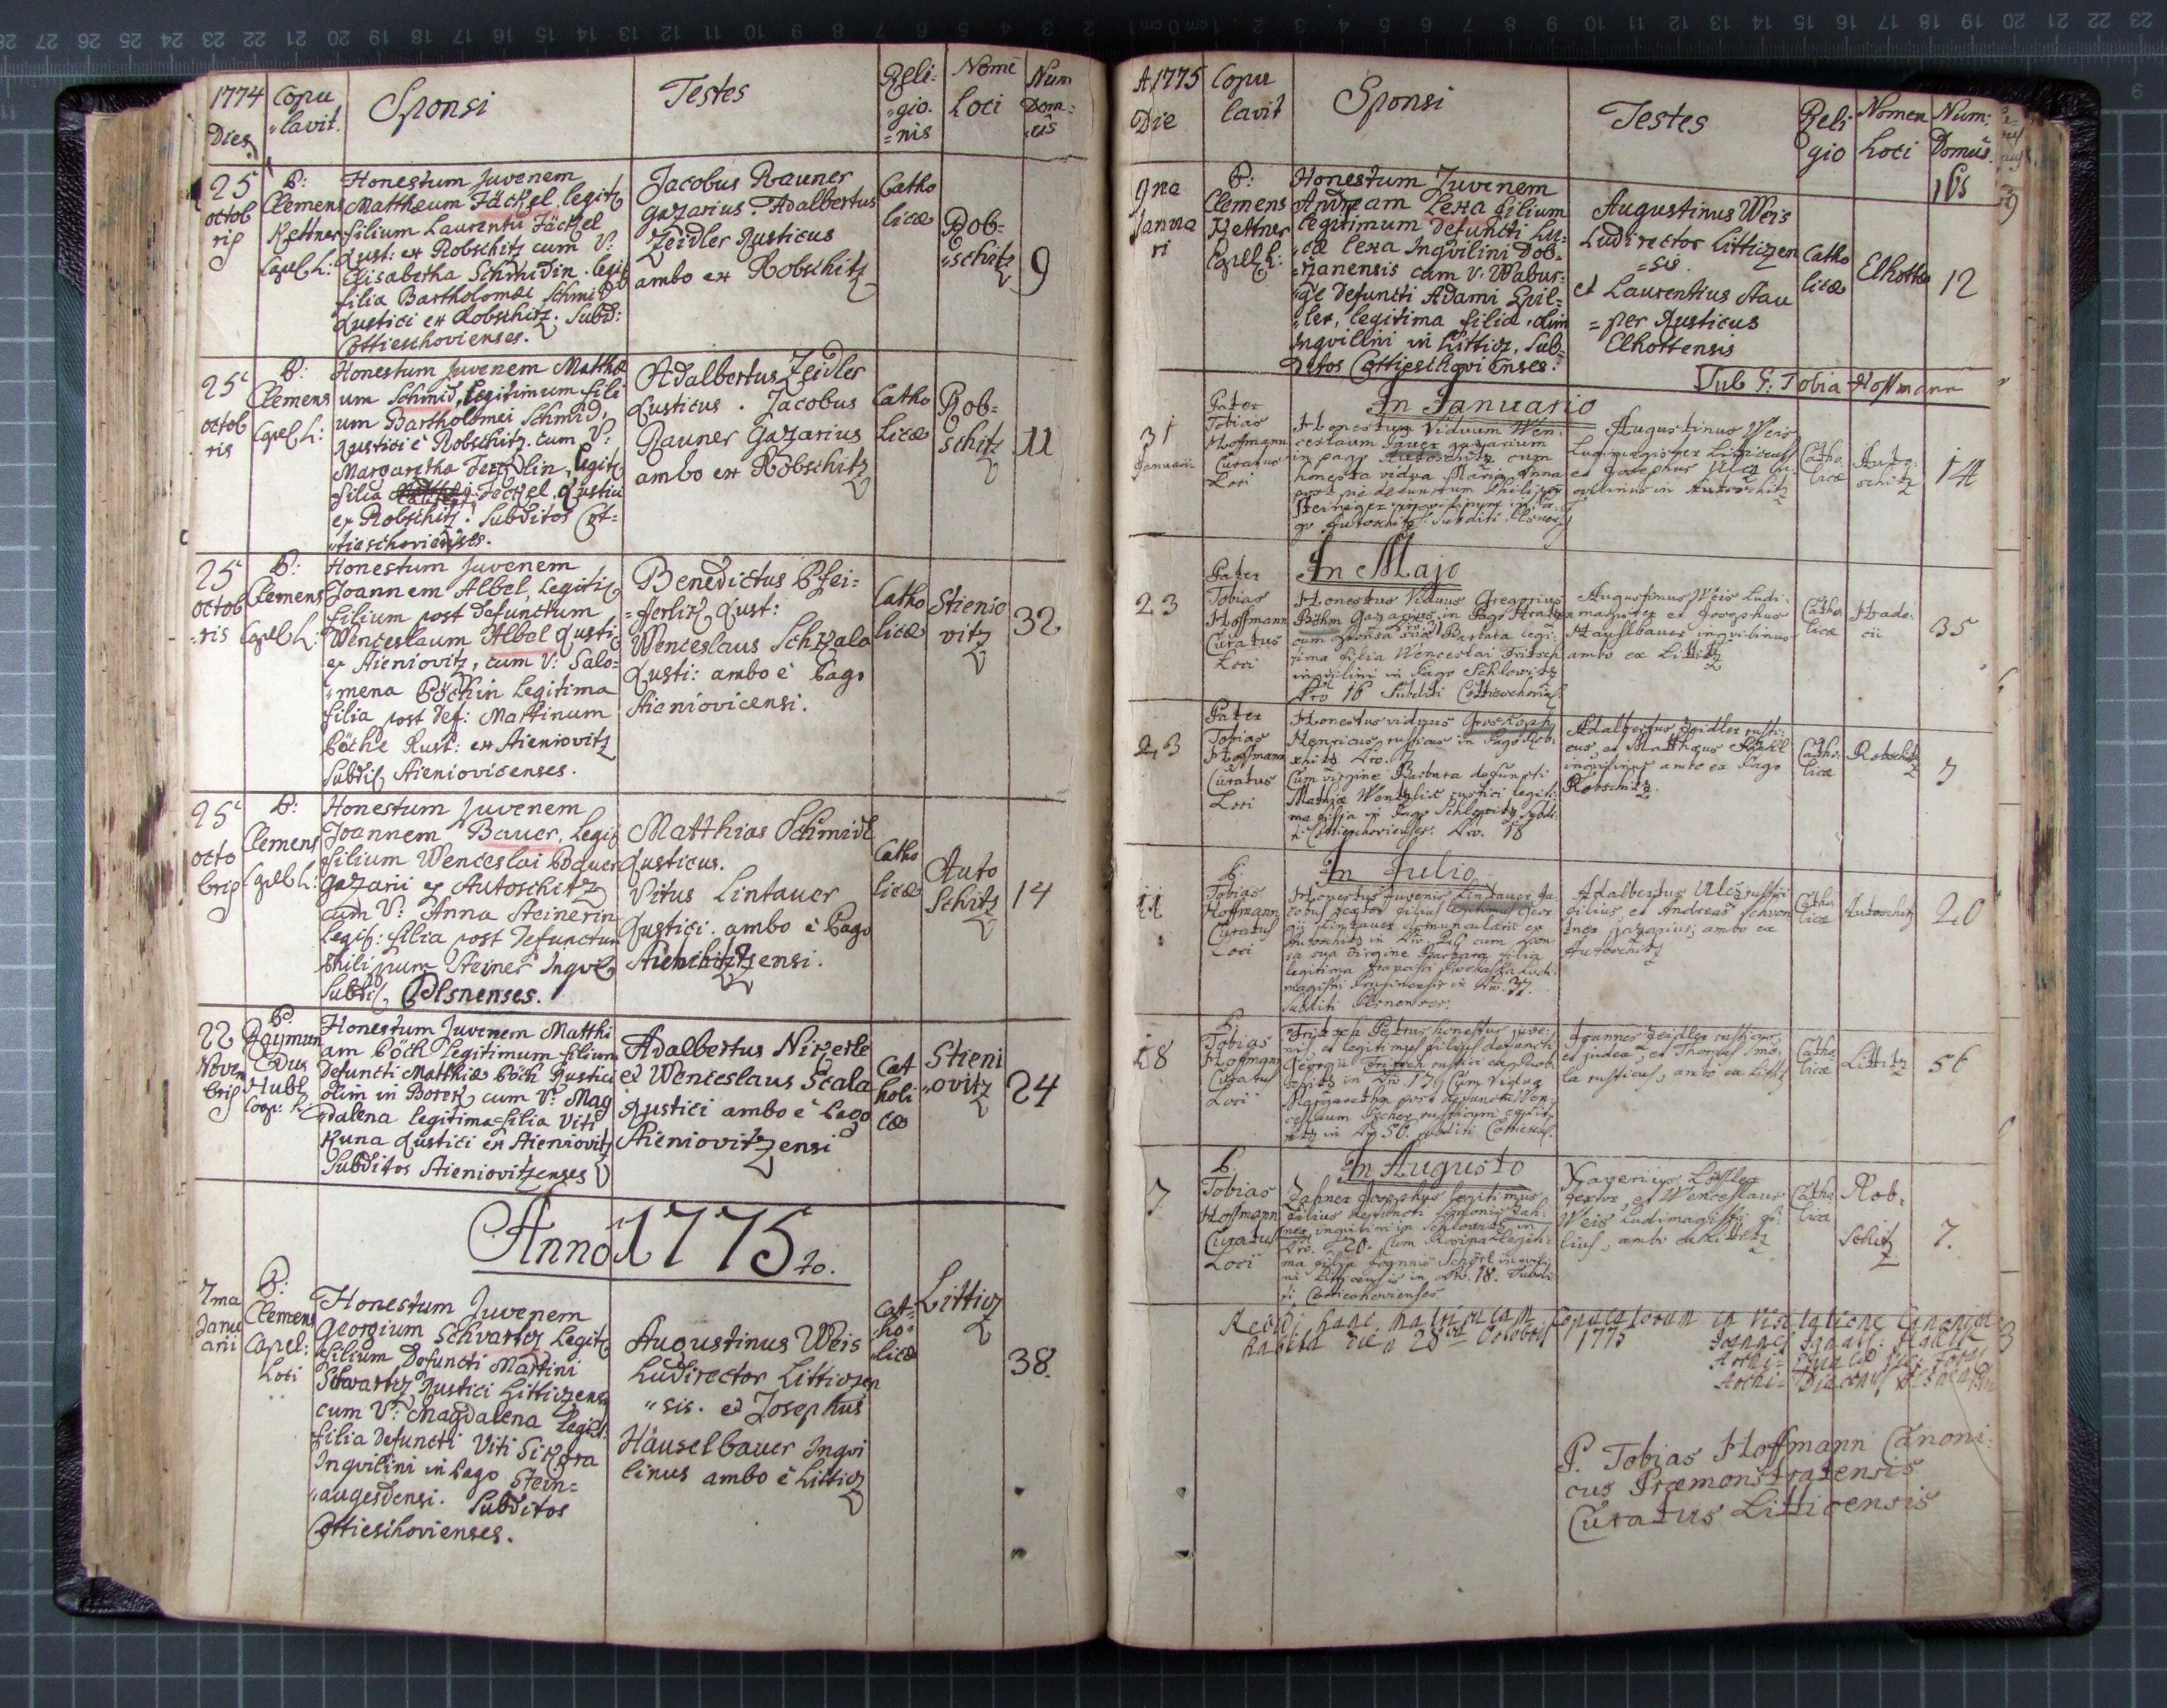 1774
Dies
Copu
"lavit.
Sponsi
Testes
Reli:
"gio.
=nis
Nome
Loci
Num
Dom:
ûs
25
octob
ris
P:
Clemens
Kettner
Capel L:
Honestum Juvenem
Matthæum Jäckel, legit
filium Laurentii Jäckel
Rust: ex Robschitz cum V:
Elisabetha Schmidin. legit
filia Bartholomæi Schmid
Rustici ex Robschitz. Subd:
Cottieschovienses.
Jacobus Rauner
gazarius. Adalbertus
Zeidler Rusticus
ambo ex Robschitz
Catho
licæ
Rob=
"schitz
9
25
octob
ris
P:
Clemens
Capel L:
Honestum Juvenem Matthæ
um Schmid, Legitimum fili
um Bartholomei Schmid,
Rustici è Robschitz. cum V:
Margaretha legit
filia Jeckel Rustici
ex Robschitz. Subditos Cot=
"tieschovienses.
Adalbertus Zeidler
Rusticus. Jacobus
Rauner Gazarius
ambo ex Robschitz
Catho
licæ
Rob=
schitz
11
25
octob
=ris
P:
Clemens
Capel L:
Honestum Juvenem
Joannem Albel, Legitim
filium post defunctum
Wenceslaum Albel Rusti
ex Stieniovitz, cum V: Salo=
"mena Böchin Legitima
filia post def: Martinum
Böche Rust: ex Stieniovitz
Subdit Stieniovicenses.
Benedictus Pfei=
=ferlik Rust:
Wenceslaus Schkala
Rusti: ambo è Pago
Stieniovicensi.
Catho
licæ
Stienio
vitz
32
25
octo
bris
P:
Clemens
Capel L:
Honestum Juvenem
Joannem Bauer, Legit
filium Wenceslai Bauer
gazarii ex Autoschitz
cum V: Anna Steinerin
Legit: filia post defunctum
Philippum Steiner Inqvil
Subdit. Pilsnenses.
Matthias Schmidt
Rusticus.
Vitus Lintauer
Rustici. ambo è Pago
Catho
licæ
Auto
Schitz
14
22
Novem
bris
P.
Raymun
dus
Hubl
Coop: L:
Honestum Juvenem Matthi
am Böch Legitimum filium
Defuncti Matthiæ Böch Rustici
olim in cum V: Mag
"dalena legitima filia Viti
Kuna Rustici ex Stieniovitz
Subditos Stieniovitzenses
Adalbertus Nikerle
et Wenceslaus Scala
Rustici ambo è Pago
Stieniovitzensi
Cat
holi
cæ
Stieni
"ovitz
24
Anno 1775to.
7ma
Janu
arii
P:
Clemens
Capel:
Loci
Honestum Juvenem
Georgium Schvartz Legit
filium Defuncti Martini
Schvartz Rustici Litticzens
cum V: Magdalena Legit:
filia defuncti Viti Sikora
Inqvilini in Pago Stein=
"augesdensi. Subditos
Cottieschovienses.
Augustinus Weis
Ludirector Litticzen
"sis. et Josephus
Häuselbauer Inqvi
linus ambo è Litticz
Cat=
"ho=
"licæ
Litticz
38.
A 1775
Die
Copu
lavit
Sponsi
Testes
Reli
gio
Nomen
Loci
Num:
Domus.
9na
Janua
ri
P:
Clemens
Kettner
Capell L:
Honestum Juvenem
Andream Lexa filium
legitimum defuncti Lu=
"cæ Lexa Inqvilini Dob=
=rzanensis cum V: Wabur=
"ge Defuncti Adami
legitima filia, olim
Inqvilini in Litticz, Sub=
ditos Cottieschovienses.
Augustinus Weis
Ludirector Litticzen
=sis.
et Laurentius Stau
=per Rusticus
Elhottensis
Catho
licæ
Elhotta
12
Sub P: Tobia Hoffmann
In Januario
31
Januarii
Pater
Tobias
Hoffmann
Curatus
Loci
Honestum Viduum Wen:
ceslaum Pauer gazarium
in pago Autoschitz cum
honesta vidua Maria Anna
post defunctum Philippum
Steineger inqvilinum in pa:
go Autoschitz. Subditi
Augustinus Weis
Ludimagister Litticensis
et Josephus Ulcz in:
qvilinus in Autoschitz
Catho:
licæ
Auto:
schitz
14
In Majo
23
Pater
Tobias
Hoffmann
Curatus
Loci
Honestus Viduus Gregorius
Böhm Gazarius in Pago Hradzen
cum sponsa sua Barbara legi:
tima filia Wenceslai Fritsch
inqvilini in Pago Schlowitz
Nro 16 Subditi Cottieschovien:
Augustinus Weis Ludi:
magister et Josephus
Hayslbauer inqvilinus
ambo ex Littitz
Catho
licæ
Hrade:
cii
35
23
Pater
Tobias
Hoffmann
Curatus
Loci
Honestus viduus Groskopf
Henricus rusticus in Pago Rob:
schitz Nro. 7
Cum virgine Barbara defuncti
Mathiæ Wentzlik rustici legiti:
ma filia in Pago Schlowitz Subdi:
ti Cottieschovienses. Nro. 18
Adalbertus Zeidler rusti:
cus, et Matthæus Jäckl
inqvilinus ambo ex Pago
Robschitz.
Catho:
licæ
Robschitz
7
In Julio
11
P.
Tobias
Hoffmann
Curatus
Loci
Honestus Juvenis Lintauer Ja:
cobus textor filius legitimus Geor
gii Lintauer ex
Autoschitz in Nro 26 cum spon:
sa sua virgine Barbara filia
legitima Ludi:
magistri in Nro. 37.
Subditi
Adalbertus Ulcz rustici
filius, et Andreas
gazarius, ambo ex
Autoschitz
Catho
licæ
Autoschitz
20
18
P.
Tobias
Hoffmann
Curatus
Loci
Fritsch Petrus honestus juve:
nis, et legitimus filius defuncti
Georgii Fritsch rustici ex Rob:
schitz in Nro 17, Cum Vidua
Margaretha post defunctum Wen:
ceslaum rusticum ex Lit:
titz in Nro 56. subditi Cottiesch.
Joannes Zeidler rusticus
et judex, et Thomas Smo:
la rusticus, ambo ex Littitz
Catho:
licæ
Littitz
56
In Augusto
7
P.
Tobias
Hoffmann
Curatus
Loci
Zahner Josephus legitimus
filius defuncti Simonis Zah:
ner inqvilini in Schlowitz in
Nro. 20. Cum Rosina legiti:
ma filia Joannis inqvili:
ni Litticensis in Nro. 18. Subdi:
ti Cottieschovienses.
Xaverius Löffler
textor, et Wenceslaus
Weis Ludimagistri fi:
lius, ambo ex Littitz
Catho
licæ
Rob:
Schitz
7.
hanc matriculam Copulatorum in Visitatione Canonica
habita die 28va Octobris 1775
P. Tobias Hoffmann Canoni:
cus Præmonstratensis
Curatus Litticensis